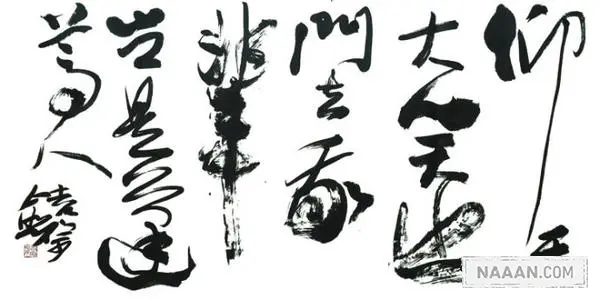 仰天
大笑出
門去我
輩
岂是蓬
蒿人
NAAAN.COM